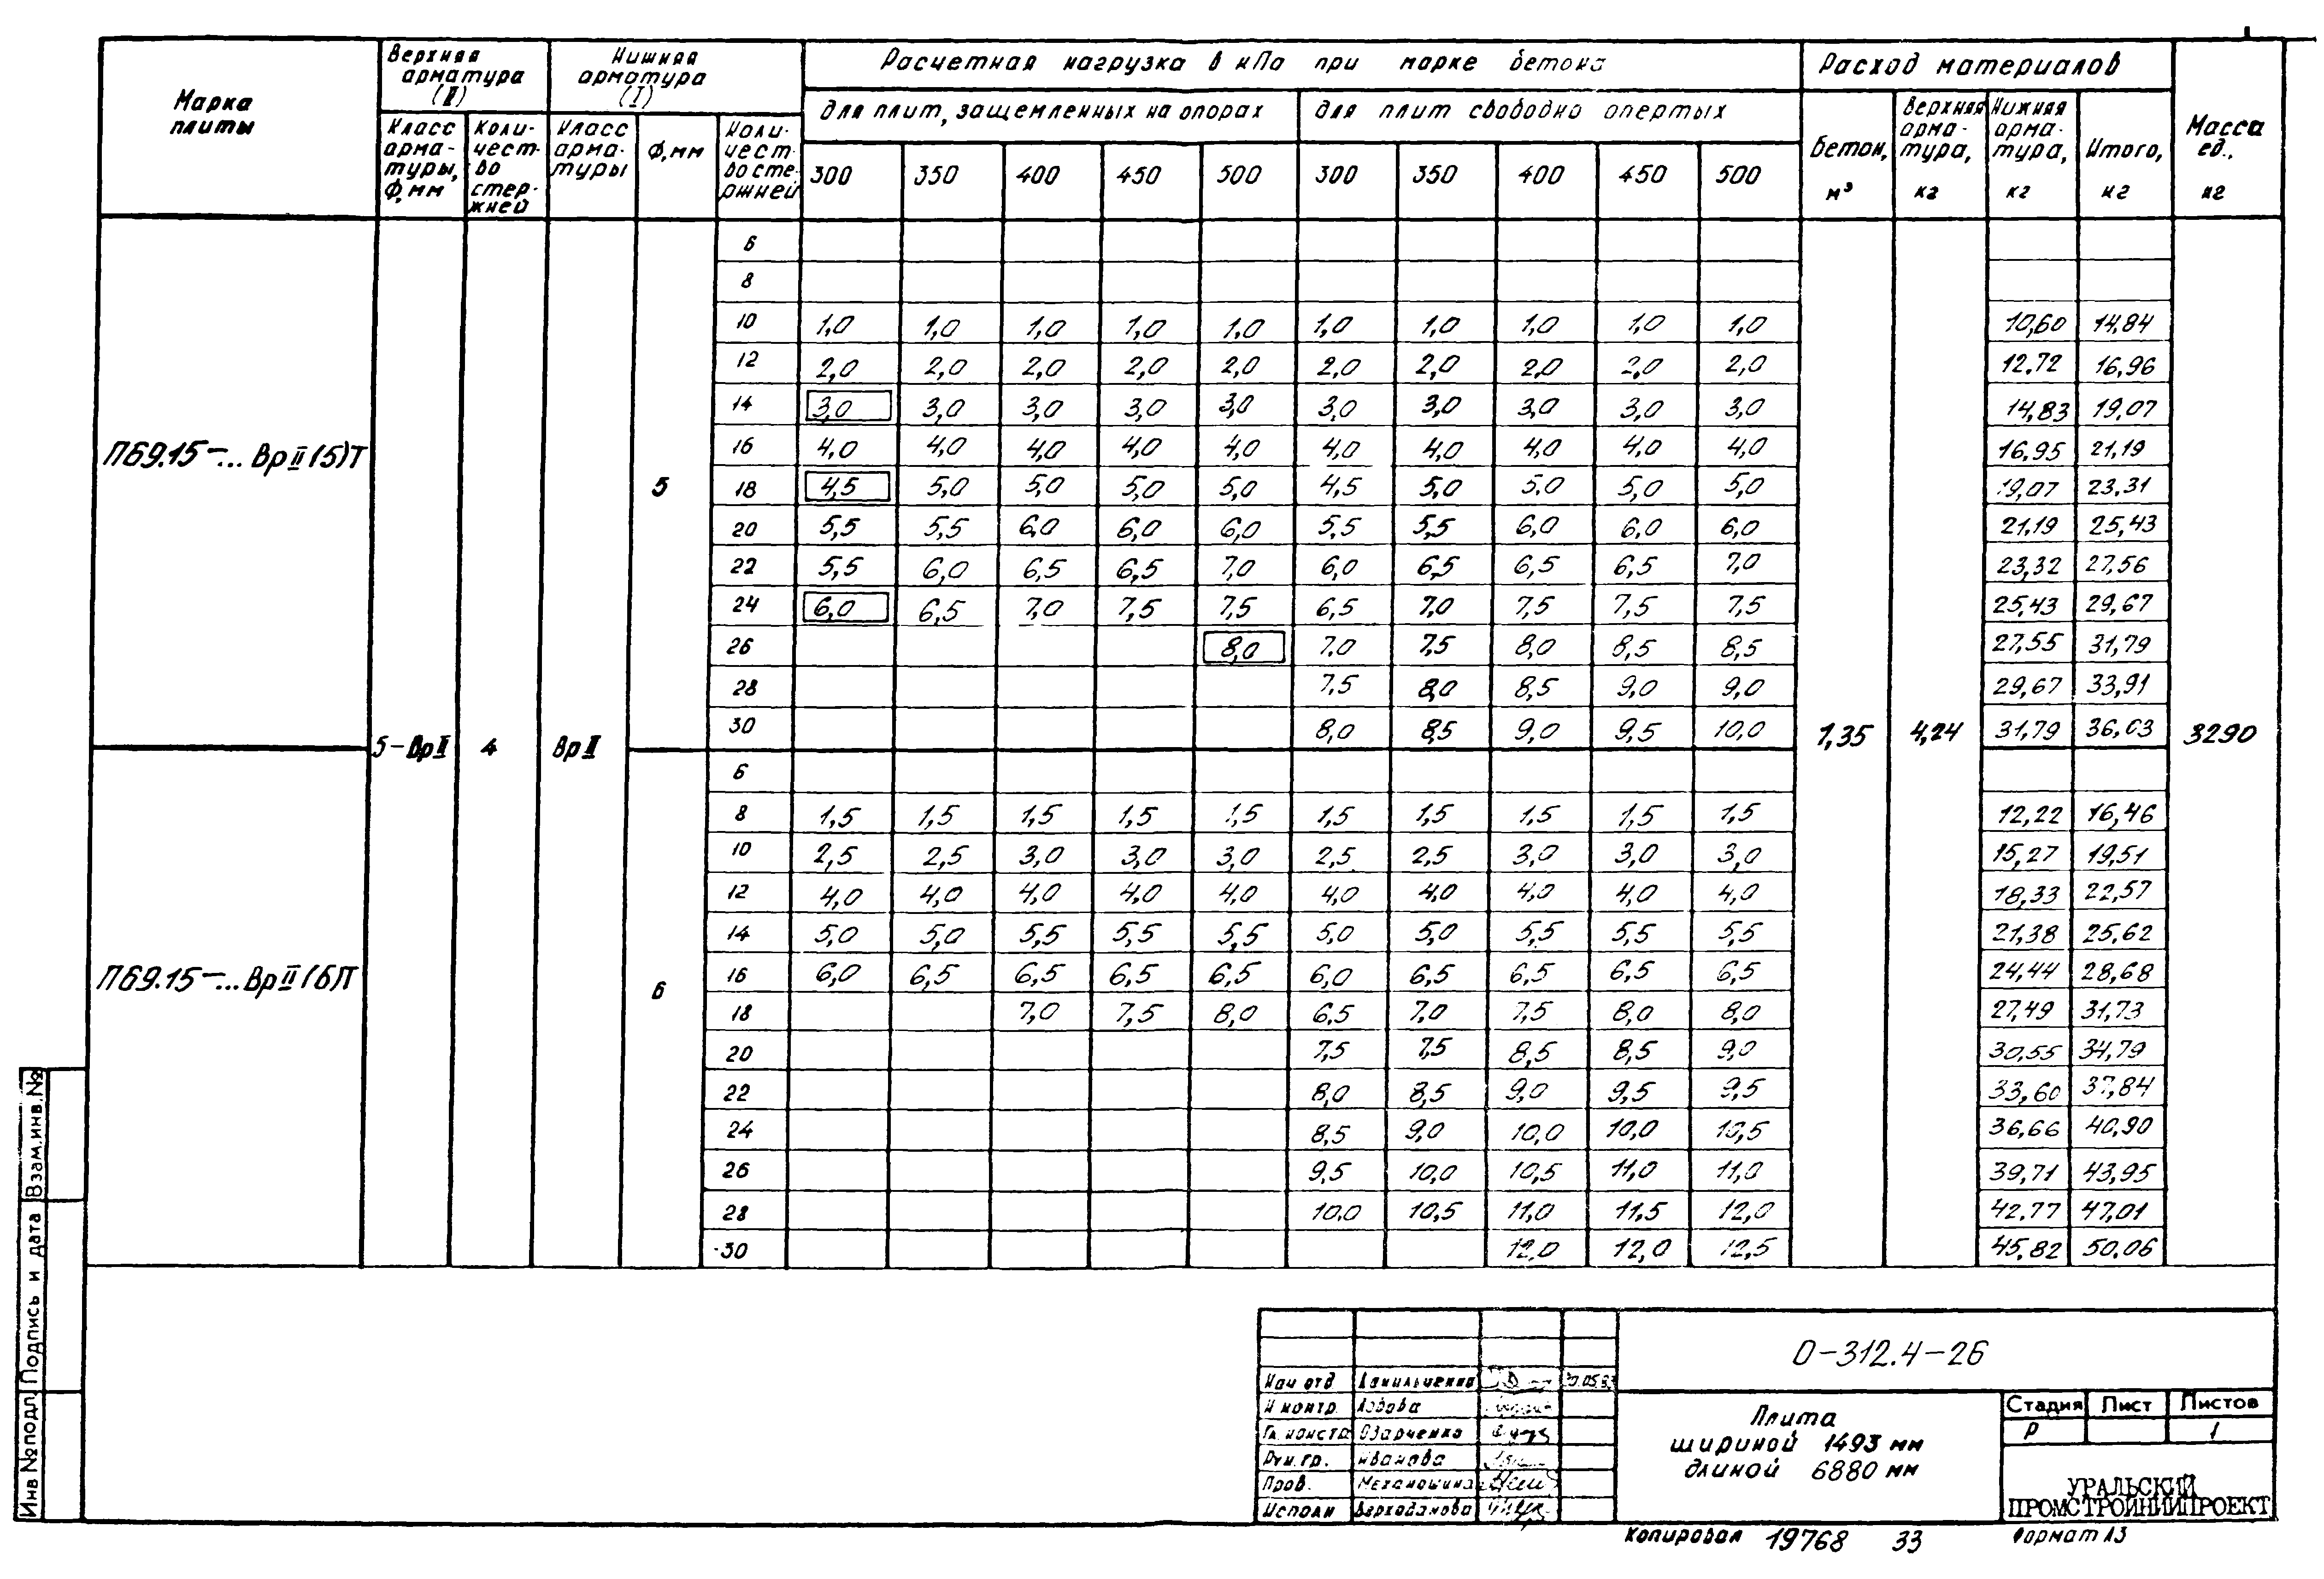 Марка плиты | Верхняя арматура (II) | Нижняя арматура (I) | Расчетная нагрузка в кПа при марке бетона | Расход материалов | Масса ед., кг
Класс арматуры, Ф, мм | Количество стержней | Класс арматуры | Ф, мм | Количество стержней | для плит, защемленных на опорах | для плит свободно опертых | бетон, м³ | Верхняя арматура, кг | Нижняя арматура, кг | Итого, кг
300 | 350 | 400 | 450 | 500 | 300 | 350 | 400 | 450 | 500
П69.15-... ВрII(5)Т | 5-ВрII | 4 | ВрII | 5 | 1,35 | 4,24 | 3290
6
8
10 | 1,0 | 1,0 | 1,0 | 1,0 | 1,0 | 1,0 | 1,0 | 1,0 | 1,0 | 1,0 | 10,60 | 14,84
12 | 2,0 | 2,0 | 2,0 | 2,0 | 2,0 | 2,0 | 2,0 | 2,0 | 2,0 | 2,0 | 12,72 | 16,96
14 | 3,0 | 3,0 | 3,0 | 3,0 | 3,0 | 3,0 | 3,0 | 3,0 | 3,0 | 3,0 | 14,83 | 19,07
16 | 4,0 | 4,0 | 4,0 | 4,0 | 4,0 | 4,0 | 4,0 | 4,0 | 4,0 | 4,0 | 16,95 | 21,19
18 | 4,5 | 5,0 | 5,0 | 5,0 | 5,0 | 4,5 | 5,0 | 5,0 | 5,0 | 5,0 | 19,07 | 23,31
20 | 5,5 | 5,5 | 6,0 | 6,0 | 6,0 | 5,5 | 5,5 | 6,0 | 6,0 | 6,0 | 21,19 | 25,43
22 | 5,5 | 6,0 | 6,5 | 6,5 | 7,0 | 6,0 | 6,5 | 6,5 | 6,5 | 7,0 | 23,32 | 27,56
24 | 6,0 | 6,5 | 7,0 | 7,5 | 7,5 | 6,5 | 7,0 | 7,5 | 7,5 | 7,5 | 25,43 | 29,67
26 | 8,0 | 7,0 | 7,5 | 8,0 | 8,5 | 8,5 | 27,55 | 31,79
28 | 7,5 | 8,0 | 8,5 | 9,0 | 9,0 | 29,67 | 33,91
30 | 8,0 | 8,5 | 9,0 | 9,5 | 10,0 | 31,79 | 36,03
П69.15-... ВрII(6)Т | 6
6
8 | 1,5 | 1,5 | 1,5 | 1,5 | 1,5 | 1,5 | 1,5 | 1,5 | 1,5 | 1,5 | 12,22 | 16,46
10 | 2,5 | 2,5 | 3,0 | 3,0 | 3,0 | 2,5 | 2,5 | 3,0 | 3,0 | 3,0 | 15,27 | 19,51
12 | 4,0 | 4,0 | 4,0 | 4,0 | 4,0 | 4,0 | 4,0 | 4,0 | 4,0 | 4,0 | 18,33 | 22,57
14 | 5,0 | 5,0 | 5,5 | 5,5 | 5,5 | 5,0 | 5,0 | 5,5 | 5,5 | 5,5 | 21,38 | 25,62
16 | 6,0 | 6,5 | 6,5 | 6,5 | 6,5 | 6,0 | 6,5 | 6,5 | 6,5 | 6,5 | 24,44 | 28,68
18 | 7,0 | 7,5 | 8,0 | 6,5 | 7,0 | 7,5 | 8,0 | 8,0 | 27,49 | 31,73
20 | 7,5 | 7,5 | 8,5 | 8,5 | 9,0 | 30,55 | 34,79
22 | 8,0 | 8,5 | 9,0 | 9,5 | 9,5 | 33,60 | 37,84
24 | 8,5 | 9,0 | 10,0 | 10,0 | 10,5 | 36,66 | 40,90
26 | 9,5 | 10,0 | 10,5 | 11,0 | 11,0 | 39,71 | 43,95
28 | 10,0 | 10,5 | 11,0 | 11,5 | 12,0 | 42,77 | 47,01
30 | 12,0 | 12,0 | 12,5 | 45,82 | 50,06
Взам.инв.№
Подпись и дата
Инв №подл.
0-312.4-26
Нач отд Данильченко
Н контр.
Гл. констр Озарченко
Рук. гр. Иванова
Пров. Механошина
Исполн Верходанова
Плита
шириной 1493 мм
длиной 6880 мм
Стадия | Лист | Листов
Р | 1
УРАЛЬСКИЙ
ПРОМСТРОЙНИИПРОЕКТ
Копировал 19768 33 Формат А3